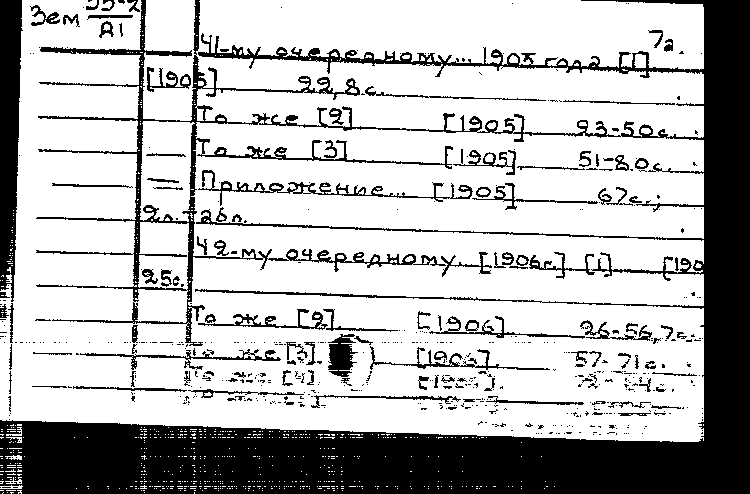 Зем 55-2
А1
7а.
41-му очередному... 1905 года [1]
[1905]. 22,8с.
То же [2] [1905]. 23-50с.
То же [3] [1905]. 51-80с.
— Приложение... [1905] 67с.;
2л.+26л.
42-му очередному... [1906г.] [1] [190
25с.
То же [2]. [1906]. 26-56,7с.
То же [3]. [1906]. 57-71с.
То же [4] [1906]. 72-84с.